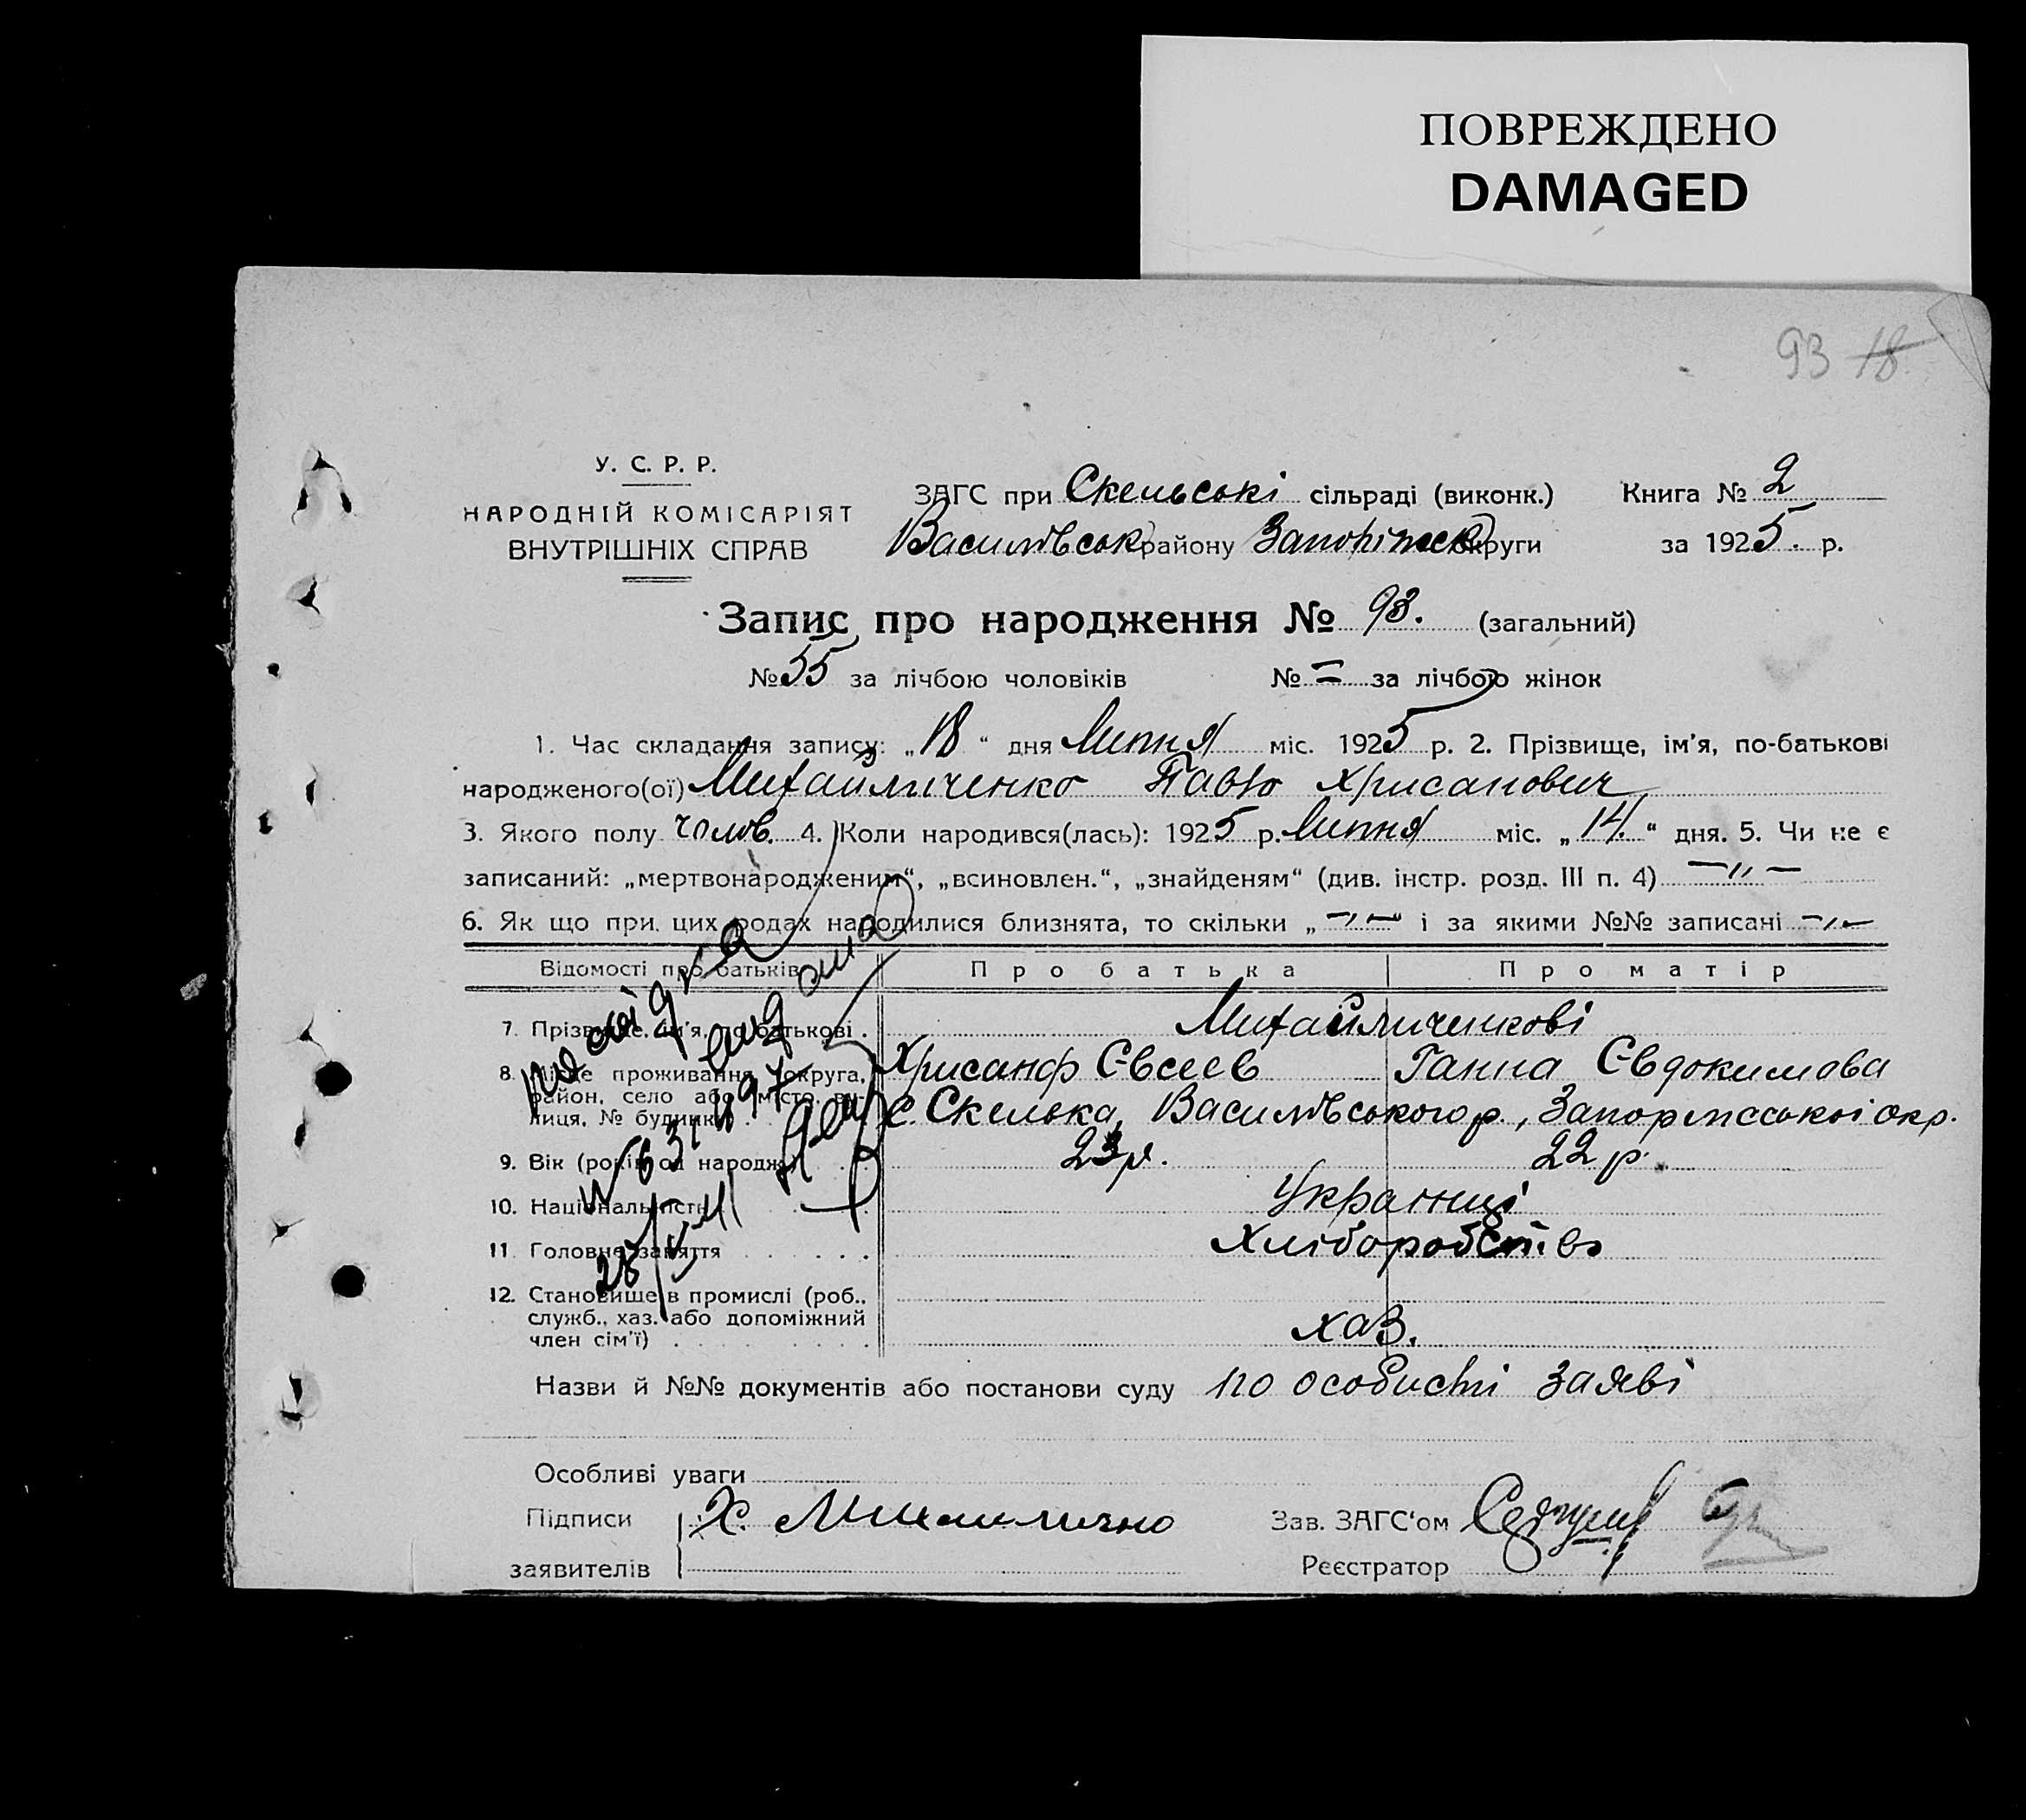 ПОВРЕЖДЕНО
DAMAGED
93 18
У. С. Р. Р.
НАРОДНІЙ КОМІСАРІЯТ
ВНУТРІШНІХ СПРАВ
ЗАГС при Скельські сільраді (виконк.) Книга № 2
Василівськ району Запоріжськ округи за 1925. р.
Запис про народження № 93. (загальний)
№ 55 за лічбою чоловіків № = за лічбою жінок
1. Час складання запису: „18“ дня Липня міс. 1925 р. 2. Прізвище, ім'я, по-батькові
народженого(ої) Михайличенко Павло Хрисанович
3. Якого полу чолов. 4. Коли народився(лась): 1925 р. Липня міс. „14.“ дня. 5. Чи не є
записаний: „мертвонародженим“, „всиновлен.“, „знайденям“ (див. інстр. розд. III п. 4) —„—
6. Як що при цих родах народилися близнята, то скільки „—„—“ і за якими №№ записані —„—
Відомості про батьків Про батька Про матір
7. Прізвище, ім'я, по батькові Михайличенкові
Хрисанф Євсеев Ганна Євдокимова
8. Місце проживання (округа,
район, село або місто, ву-
лиця, № будинк. с. Скелька, Василівського р., Запоріжської окр.
9. Вік (років од народж.) 23 р. 22 р.
10. Національність Українці
11. Головне заняття Хліборобств
12. Становище в промислі (роб.,
служб., хаз. або допоміжний
член сім'ї) хаз.
Назви й №№ документів або постанови суду по особисті заяві
Особливі уваги
Підписи Х.
заявителів
Зав. ЗАГС'ом
Реєстратор